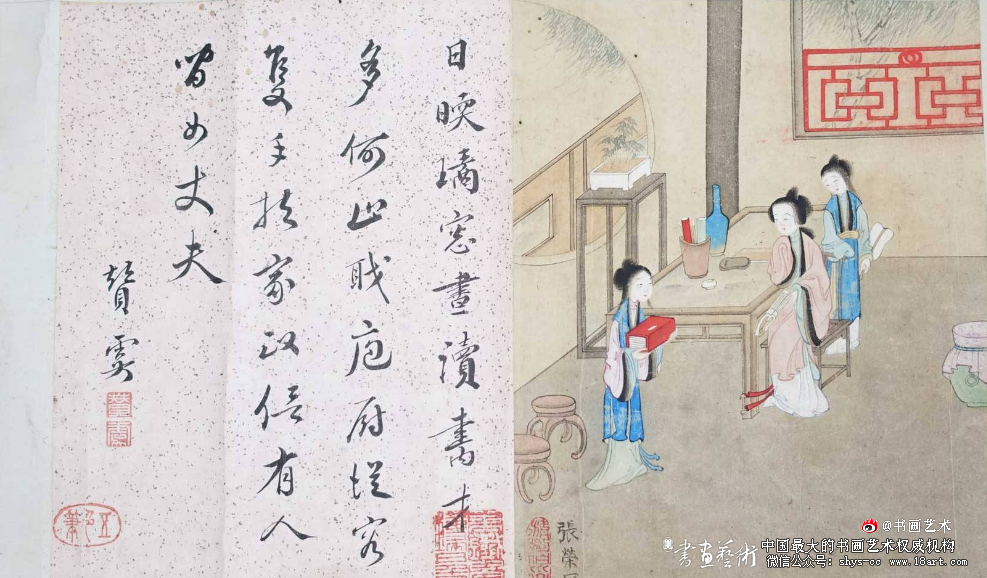 日暎璚窓晝讀書才
多何止職庖厨從容
隻手扶家政信有人
間女丈夫
張榮
@书画艺术
書畫藝術
中国最大的书画艺术权威机构
微信公众号：shys-cc www.18art.com